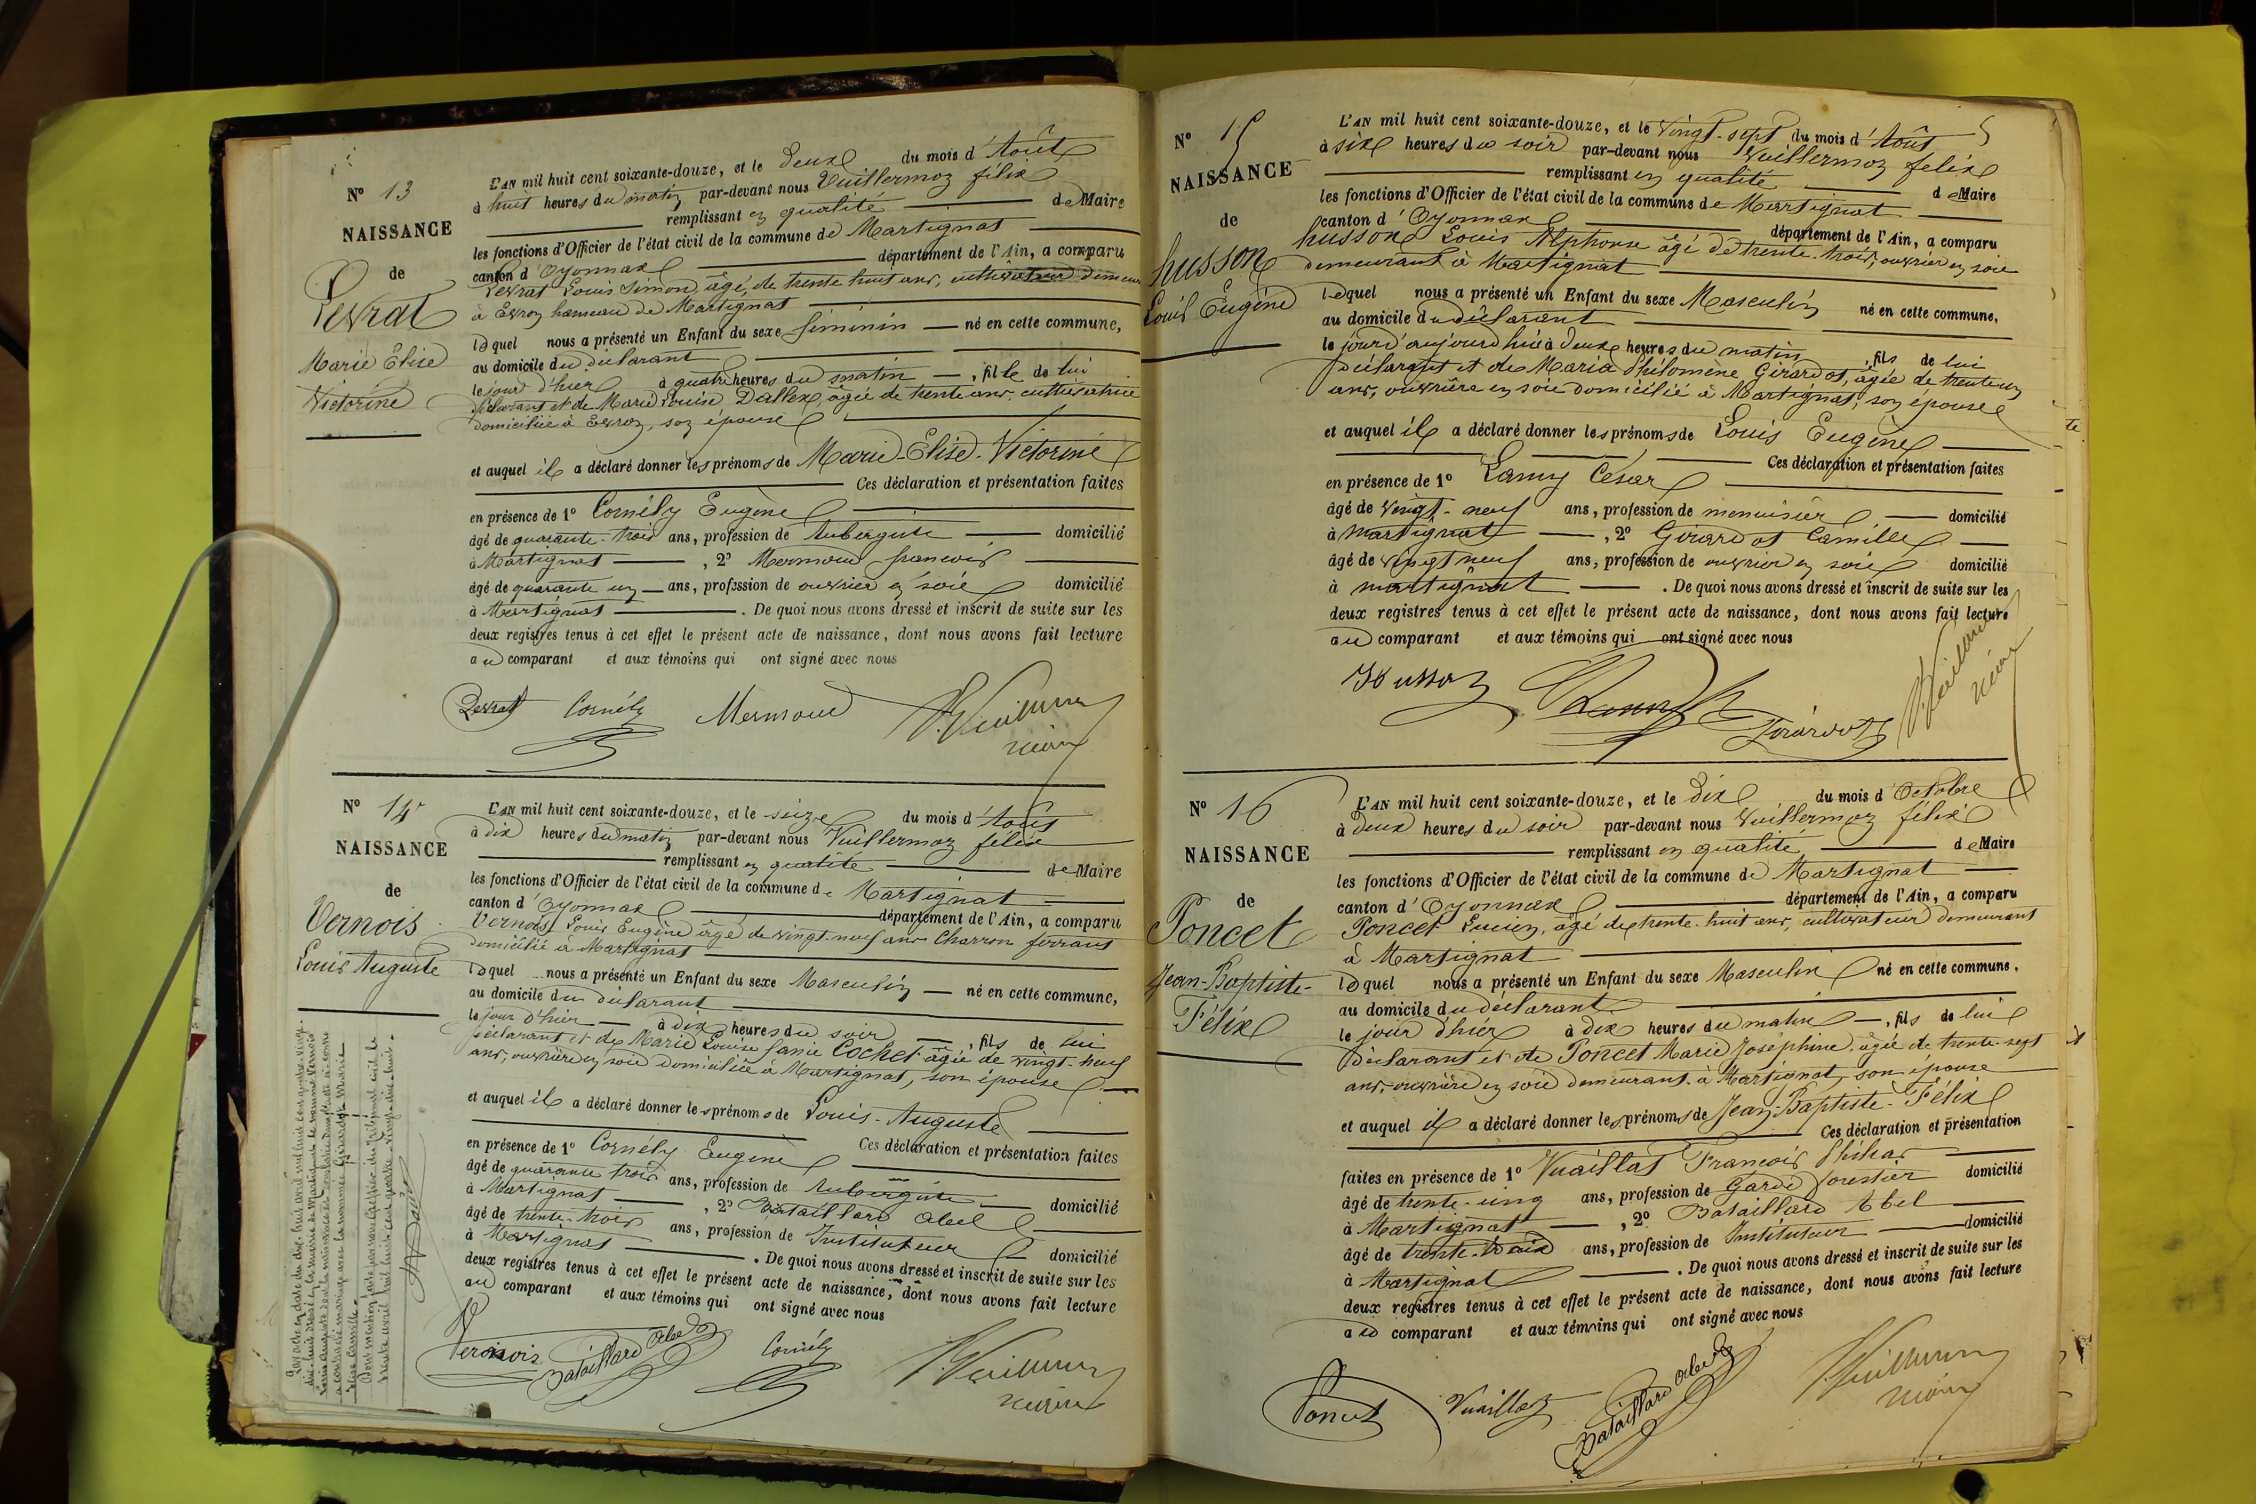 N° 13
NAISSANCE
de
Pevrat
Marie Elise
Victorine
L'AN mil huit cent soixante-douze, et le Deux du mois d'Août
à huit heures du matin par-devant nous Vuillermoz félix
remplissant en qualité de Maire
les fonctions d'Officier de l'état civil de la commune de Martignat
canton d'Oyonnax département de l'Ain, a comparu
Pevrat Louis Simon âgé de trente huit ans, cultivateur demeur
à Evron hameau de Martignat
lequel nous a présenté un Enfant du sexe féminin né en cette commune,
au domicile du déclarant
le jour d'hier à quatre heures du matin, fille de lui
déclarant et de Marie Louise Dallex, âgée de trente ans, cultivatrice
domiciliée à Evron, son épouse
et auquel il a déclaré donner les prénoms de Marie-Elise-Victorine
Ces déclaration et présentation faites
en présence de 1° Cornély Eugène
âgé de quarante-trois ans, profession de Aubergiste domicilié
à Martignat, 2° Mermoud françois
âgé de quarante un ans, profession de ouvrier en soie domicilié
à Martignat. De quoi nous avons dressé et inscrit de suite sur les
deux registres tenus à cet effet le présent acte de naissance, dont nous avons fait lecture
au comparant et aux témoins qui ont signé avec nous
Pevrat Cornély Mermoud F. Vuillermoz
maire
N° 14
NAISSANCE
de
Vernois
Louis Auguste
L'AN mil huit cent soixante-douze, et le seize du mois d'Août
à dix heures du matin par-devant nous Vuillermoz félix
remplissant en qualité de Maire
les fonctions d'Officier de l'état civil de la commune de Martignat
canton d'Oyonnax département de l'Ain, a comparu
Vernois Louis Eugène âgé de vingt-neuf ans Charron ferrant
domicilié à Martignat
lequel nous a présenté un Enfant du sexe Masculin né en cette commune,
au domicile du déclarant
le jour d'hier à dix heures du soir, fils de lui
déclarant et de Marie Louise fanie Cochet âgée de vingt-neuf
ans, ouvrière en soie domiciliée à Martignat, son épouse
et auquel il a déclaré donner les prénoms de Louis-Auguste
Ces déclaration et présentation faites
en présence de 1° Cornély Eugène
âgé de quarante trois ans, profession de Aubergiste domicilié
à Martignat, 2° Bataillard Abel
âgé de trente-trois ans, profession de Instituteur domicilié
à Martignat. De quoi nous avons dressé et inscrit de suite sur les
deux registres tenus à cet effet le présent acte de naissance, dont nous avons fait lecture
au comparant et aux témoins qui ont signé avec nous
Vernois Bataillard Abel Cornély F. Vuillermoz
maire
Par acte en date du dix-huit avril mil huit cent quatre-vingt-
dix-huit dressé en la mairie de Martignat le nommé Vernois
Louis Auguste dont la naissance est constatée dans l'acte ci-contre
a contracté mariage avec la nommée Girardot Marie
Camille.
Dont mention faite par nous Greffier du Tribunal civil le
trente avril mil huit cent quatre-vingt-dix-huit.
N° 15
NAISSANCE
de
husson
Louis Eugène
L'AN mil huit cent soixante-douze, et le Vingt-sept du mois d'Août
à six heures du soir par-devant nous Vuillermoz félix
remplissant en qualité de Maire
les fonctions d'Officier de l'état civil de la commune de Martignat
canton d'Oyonnax département de l'Ain, a comparu
husson Louis Alphonse âgé de trente-trois, ouvrier en soie
demeurant à Martignat
lequel nous a présenté un Enfant du sexe Masculin né en cette commune,
au domicile du déclarant
le jour d'aujourd'hui à Deux heures du matin, fils de lui
déclarant et de Maria Philomène Girardot, âgée de trente un
ans, ouvrière en soie domicilié à Martignat, son épouse
et auquel il a déclaré donner les prénoms de Louis Eugène
Ces déclaration et présentation faites
en présence de 1° Lamy César
âgé de vingt-neuf ans, profession de menuisier domicilié
à Martignat, 2° Girardot Camille
âgé de vingt neuf ans, profession de ouvrier en soie domicilié
à Martignat. De quoi nous avons dressé et inscrit de suite sur les
deux registres tenus à cet effet le présent acte de naissance, dont nous avons fait lecture
au comparant et aux témoins qui ont signé avec nous
Husson Lamy Girardot F. Vuillermoz
maire
N° 16
NAISSANCE
de
Poncet
Jean-Baptiste-
Félix
L'AN mil huit cent soixante-douze, et le Dix du mois d'Octobre
à deux heures du soir par-devant nous Vuillermoz félix
remplissant en qualité de Maire
les fonctions d'Officier de l'état civil de la commune de Martignat
canton d'Oyonnax département de l'Ain, a comparu
Poncet Lucien, âgé de trente-huit ans, cultivateur demeurant
à Martignat
lequel nous a présenté un Enfant du sexe Masculin né en cette commune,
au domicile du déclarant
le jour d'hier à dix heures du matin, fils de lui
déclarant et de Poncet Marie Joséphine, âgée de trente-sept
ans, ouvrière en soie demeurant à Martignat, son épouse
et auquel il a déclaré donner les prénoms de Jean-Baptiste-Félix
Ces déclaration et présentation
faites en présence de 1° Vuaillat François
âgé de trente-cinq ans, profession de Garde forestier domicilié
à Martignat, 2° Bataillard Abel
âgé de trente-trois ans, profession de Instituteur domicilié
à Martignat. De quoi nous avons dressé et inscrit de suite sur les
deux registres tenus à cet effet le présent acte de naissance, dont nous avons fait lecture
au comparant et aux témoins qui ont signé avec nous
Poncet Vuaillat Bataillard Abel F. Vuillermoz
maire